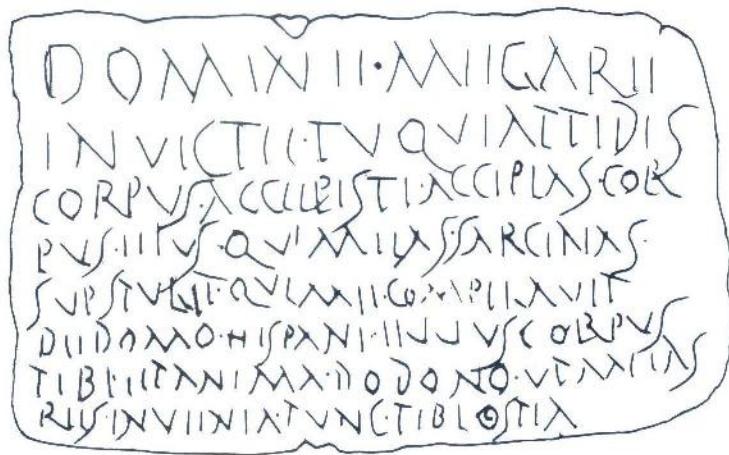 DOMINII·MIIGARII
INVICTII·TVQVIATTIDIS
CORPVS·ACCIIPISTI·ACCIPIAS·COR
PVS·IIIVS·QVI MIIAS·SARCINAS·
SVPSTVLIT·QVI·MII·COMPILAVIT
DII DOMO·HISPANI·ILLIVS CORPVS
TIBI·IIT ANIMA·DO DONO·VT MIIAS
RIIS·INVIINIA·TVNC·TIBI OSTIA